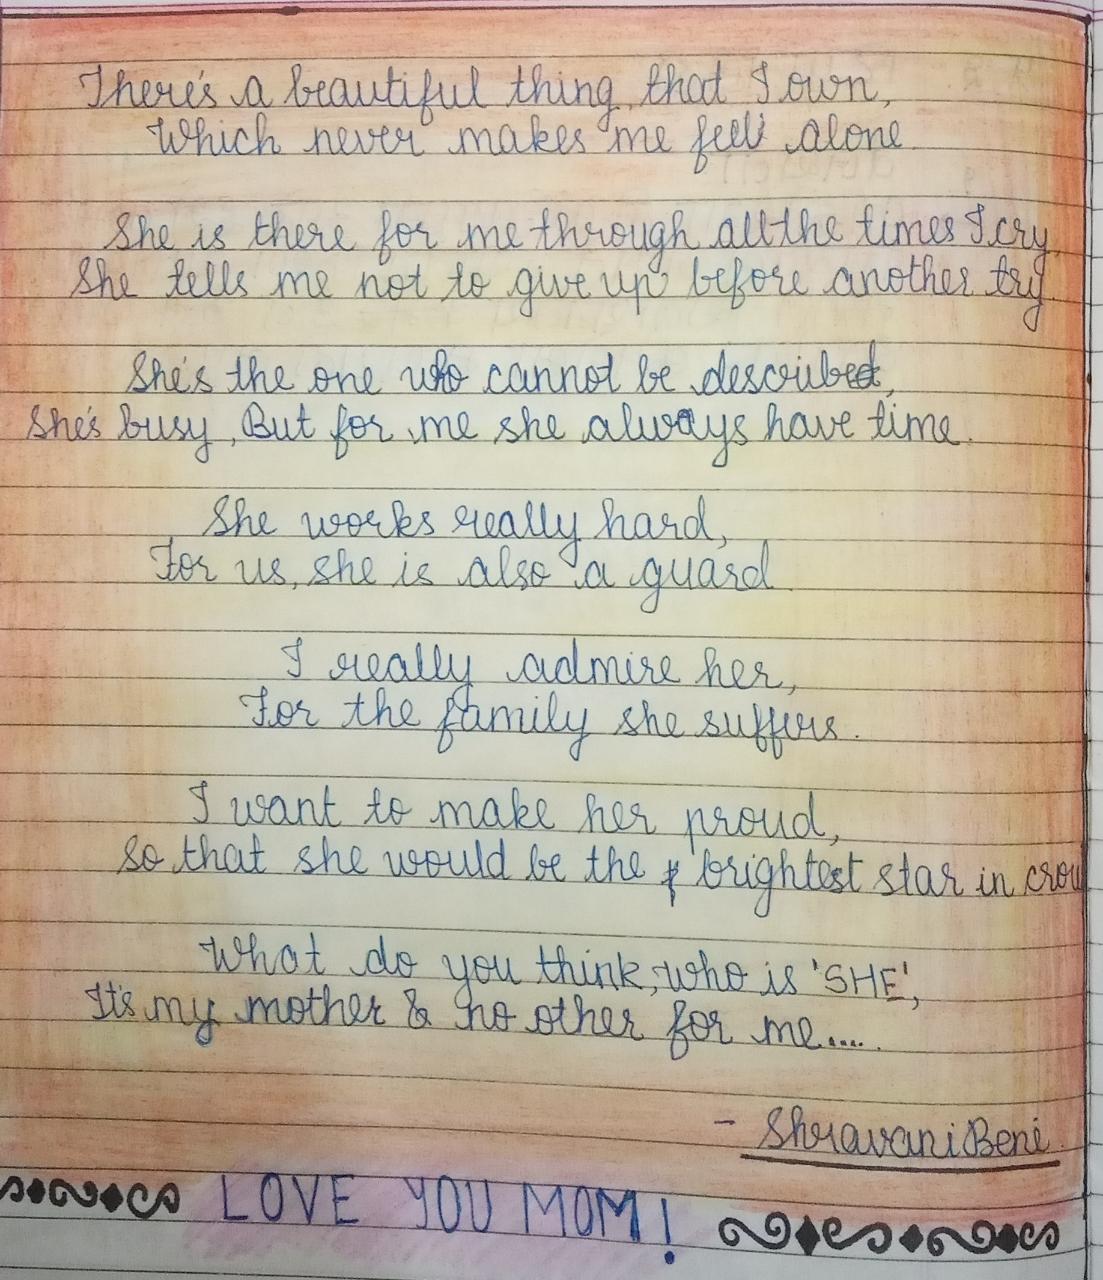 There's a beautiful thing, that I own,
Which never makes me feel alone.
She is there for me through all the times I cry,
She tells me not to give up before another try.
She's the one who cannot be described,
She's busy, But for me she always have time.
She works really hard,
For us, she is also a guard.
I really admire her,
For the family she suffers.
I want to make her proud,
So that she would be the brightest star in crow
What do you think, who is 'SHE',
It's my mother & no other for me.....
- Shravani Beni
LOVE YOU MOM!